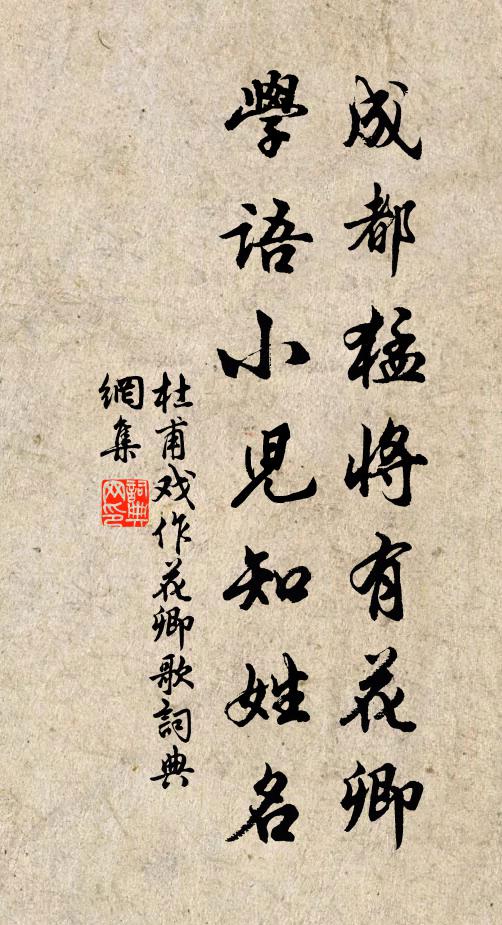 成都猛将有花卿
學語小兒知姓名
杜甫戏作花卿歌詞典
網集
詞典
网印